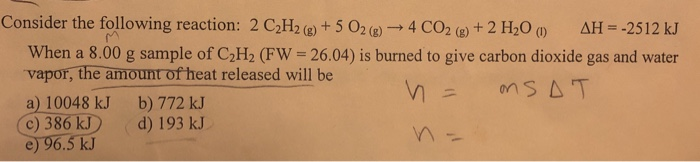 Consider the following reaction: 2 C₂H₂ (g) + 5 O₂ (g) → 4 CO₂ (g) + 2 H₂O (l) ΔH = -2512 kJ
m
When a 8.00 g sample of C₂H₂ (FW = 26.04) is burned to give carbon dioxide gas and water
vapor, the amount of heat released will be
a) 10048 kJ b) 772 kJ
c) 386 kJ d) 193 kJ
e) 96.5 kJ
n = msΔT
n =